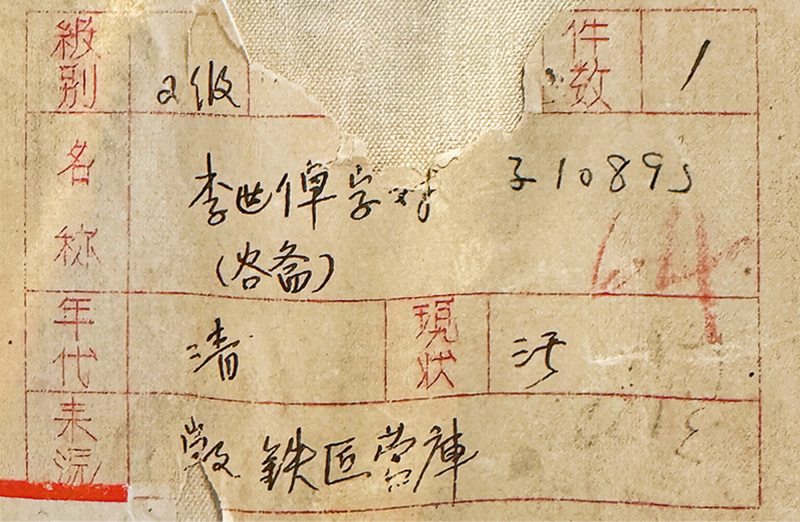 級别 2级 件数 1
名称 李世倬字对 子10895
(容斋)
年代 清 現状 污
来源 铁匠营庫